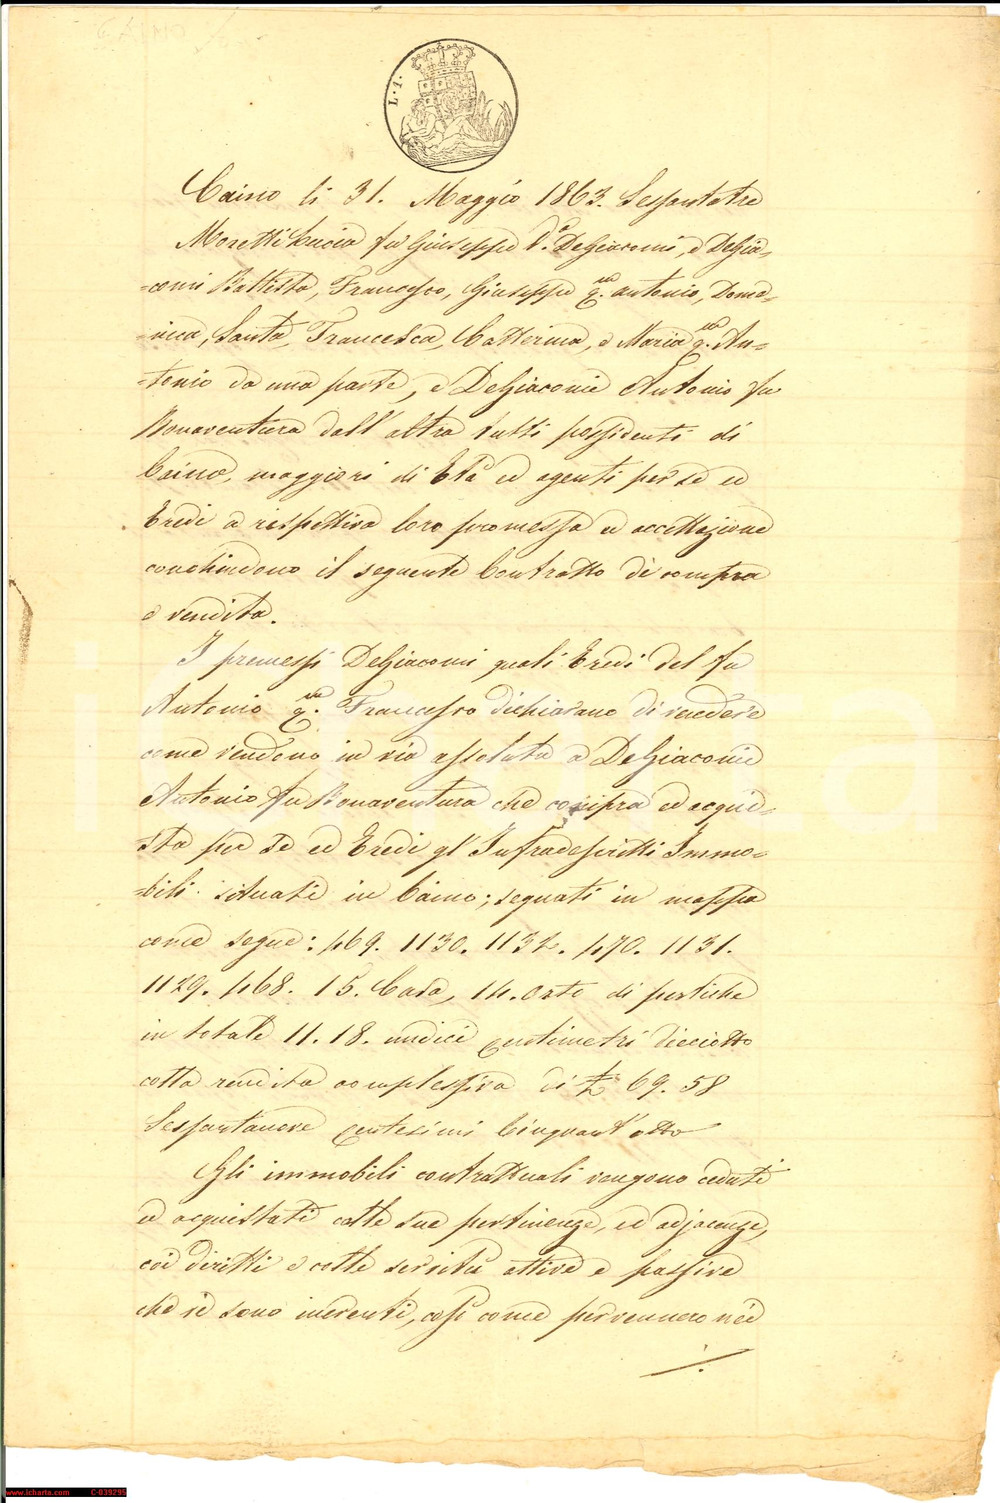 L. 1.
Caino li 31. Maggio 1863. Sessantatre
Moretti Lucia fu Giuseppe V.a DeGiacomi, e DeGia=
=comi Battista, Francesco, Giuseppe q.m Antonio, Dome=
=nica, Santa, Francesca, Catterina, e Maria q.m An=
=tonio da una parte, e DeGiacomi Antonio fu
Bonaventura dall'altra tutti possidenti di
Caino, maggiori di Età ed agenti per se ed
Eredi a rispettiva loro promessa ed accettazione
conchiudono il seguente Contratto di compra
e vendita.
I premessi DeGiacomi quali Eredi del fu
Antonio q.m Francesco dichiarano di vendere
come vendono in via assoluta a DeGiacomi
Antonio fu Bonaventura che compra ed acqui=
sta per se ed Eredi gl'Infradescritti Immo=
=bili situati in Caino; segnati in mappa
come segue: 469. 1130. 1132. 470. 1131.
1129. 468. 15. Casa, 14. Orto di pertiche
in totale 11. 18. undici centimetri dicciotto
colla rendita complessiva di £ 69. 58
Sessantanove centesimi Cinquant'otto
Gli immobili contrattuali vengono ceduti
ed acquistati colle sue pertinenze, ed adjacenze,
coi diritti e colle servitù attive e passive
che vi sono inerenti, così come pervennero nei
./.
www.icharta.com C-039295
icharta